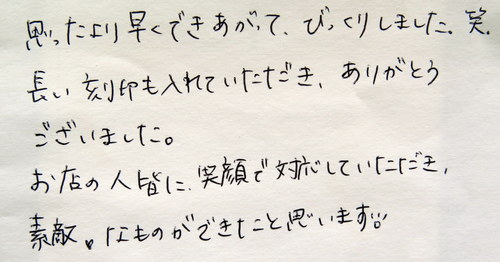 思ったより早くできあがって、びっくりしました。笑
長い刻印も入れていただき、ありがとう
ございました。
お店の人皆に、笑顔で対応していただき、
素敵。なものができたこと思います